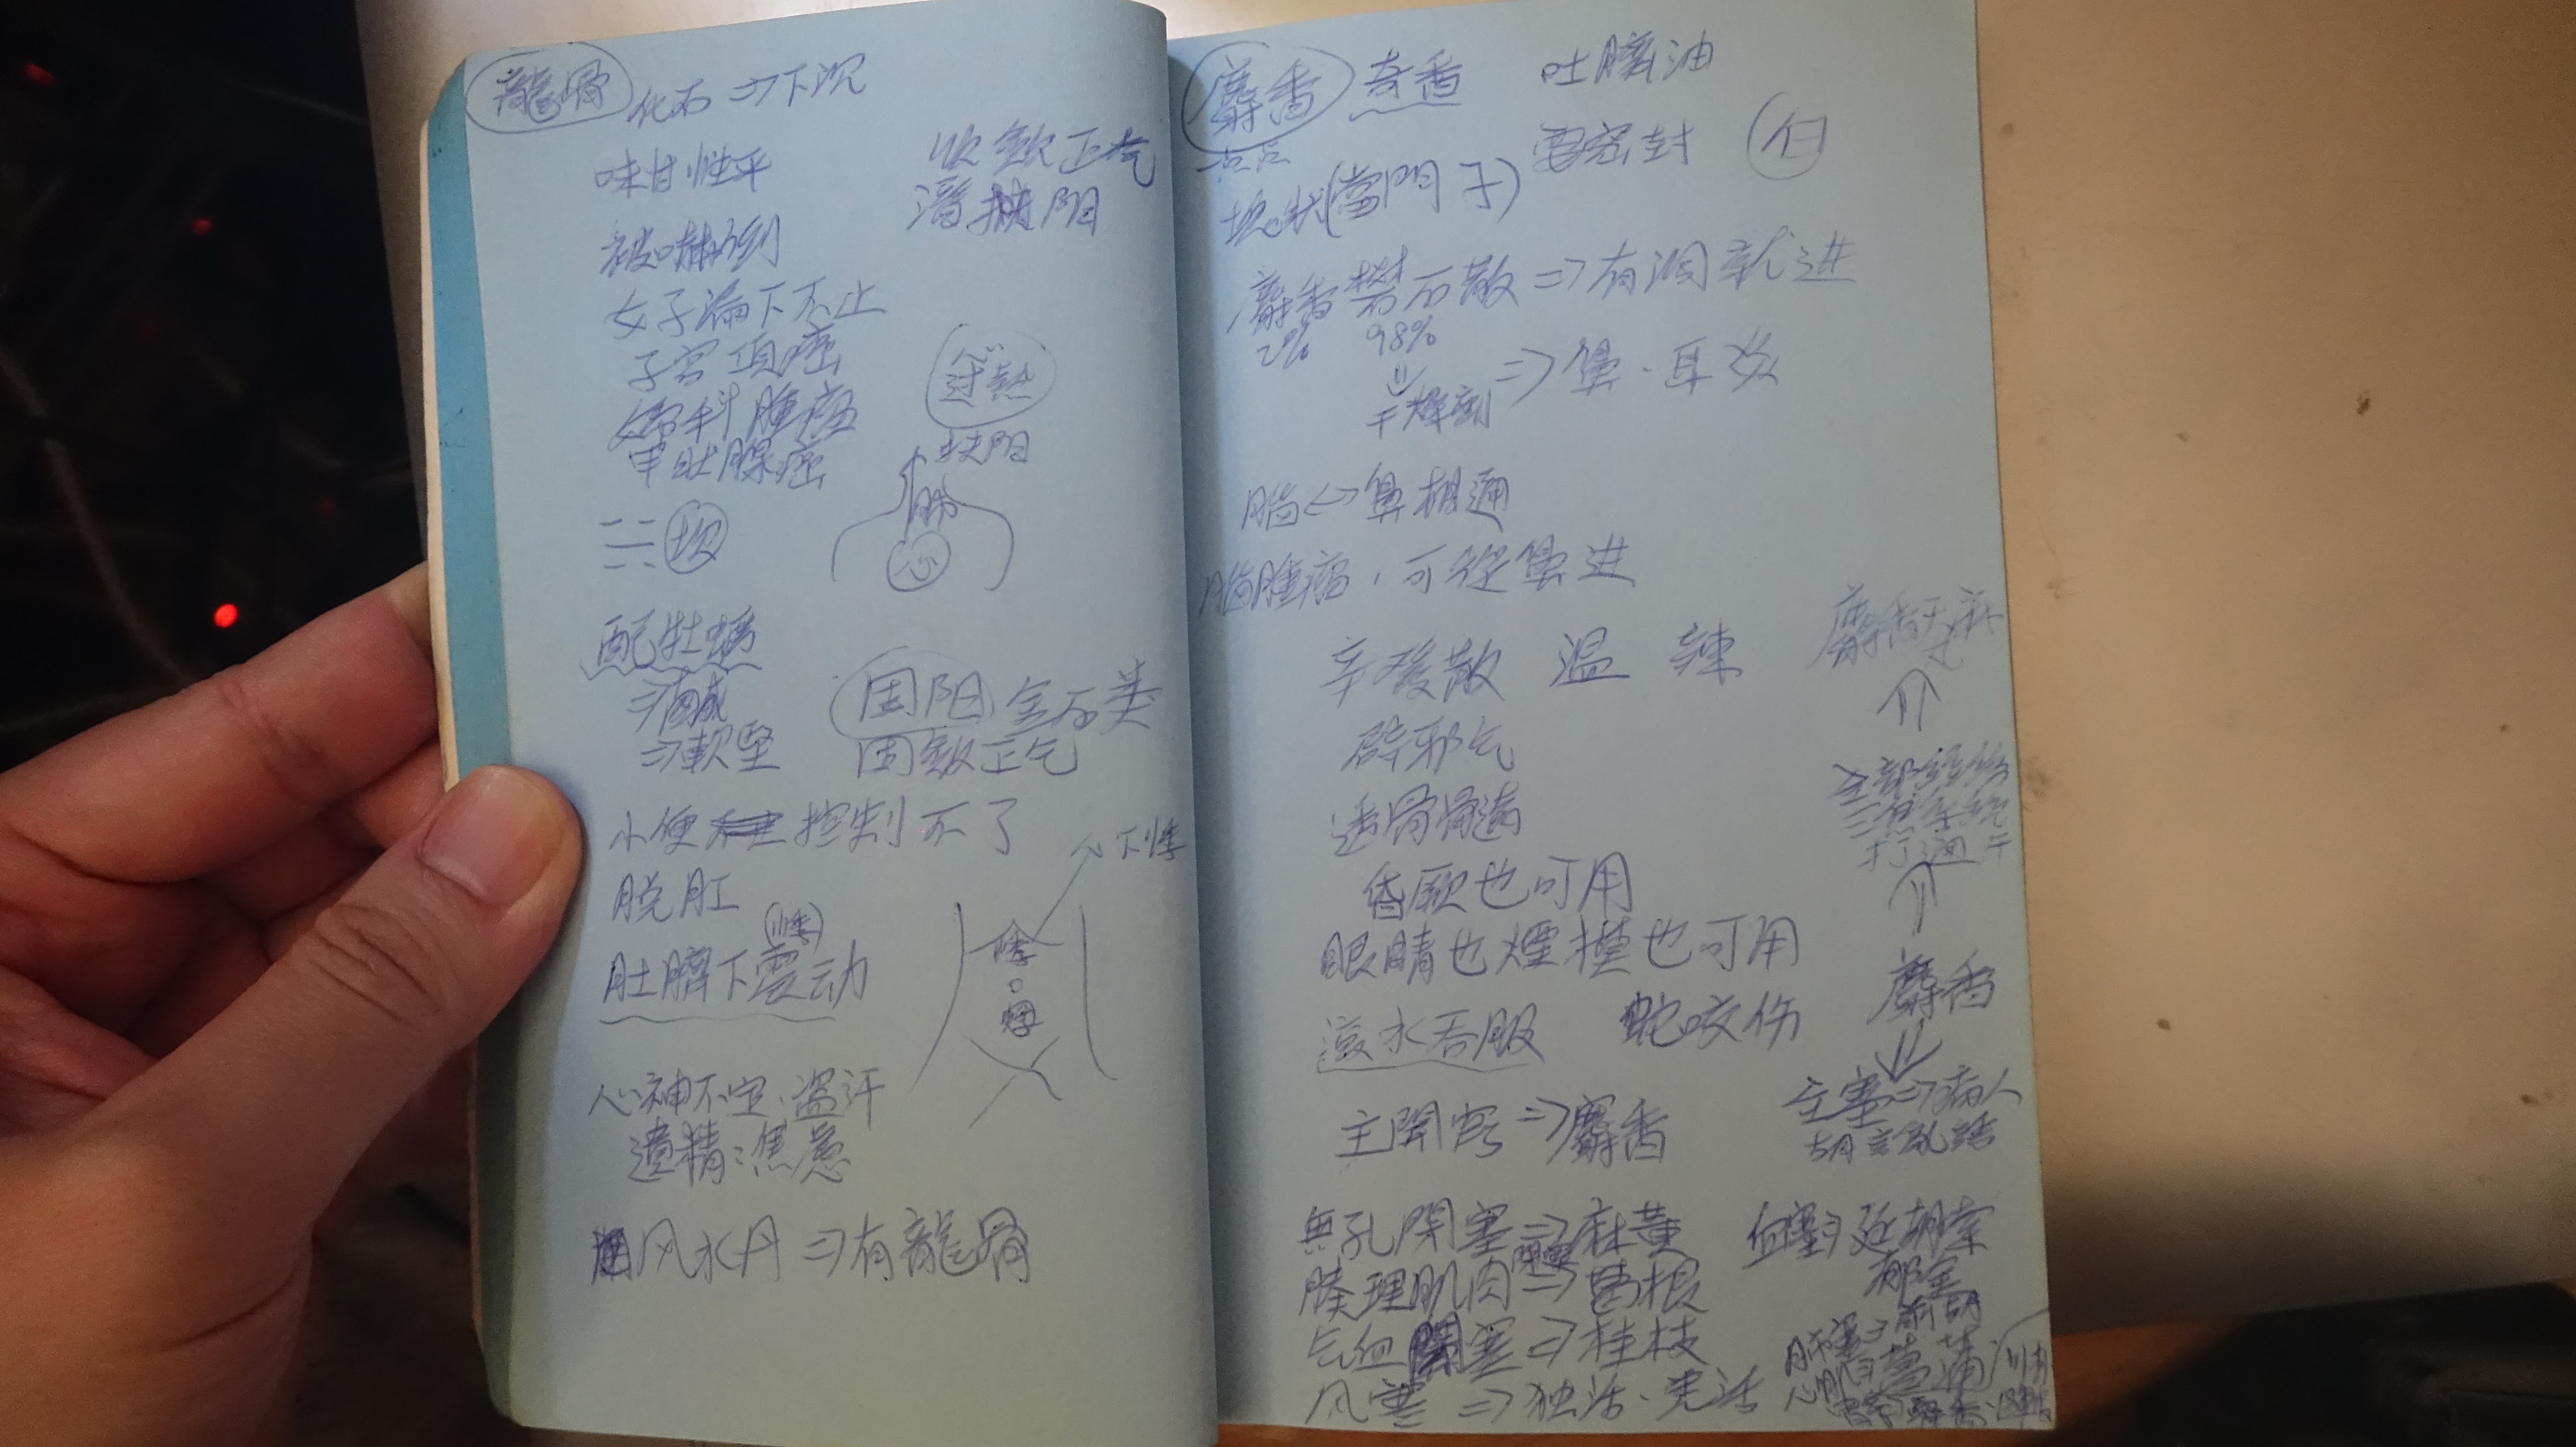 龍骨 化石 ⇒下沉
味甘性平
收斂正气
潛 阳
被嚇到
女子漏下不止
子宮頸癌
婦科腫瘤
甲狀腺癌
坎
过熱
扶阳
肺
心
配牡蠣
⇒鹹
⇒軟坚
固阳 金石类
固斂正气
小便 控制不了
脱肛
(悸)
肚臍下震动
下悸
悸
心神不定、盗汗
遺精:焦慮
风水丹⇒有龍骨
麝香 奇香 吐臍油
需密封
塊状(當門子)
麝香礬石散⇒有洞就进
2% 98%
干燥劑 ⇒鼻、耳
腦⇔鼻相通
腦腫瘤,可從鼻进
辛 散 温 辣
辟邪气
透骨骨
昏厥也可用
眼睛也 也可用
滾水吞服 蛇咬伤
主開窍⇒麝香
全部經絡
三焦系統
打通
麝香
⇒病人
胡言亂語
無孔閉塞⇒麻黃
腠理肌肉 ⇒葛根
气血 塞⇒桂枝
风寒 ⇒独活、羌活
血塞⇒延胡索
郁金
菖蒲